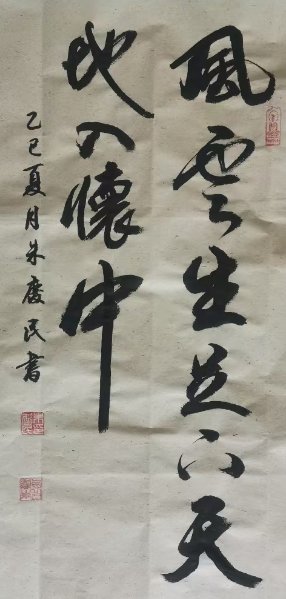 風雲生足下天
地入懷中
乙巳夏月朱慶民書